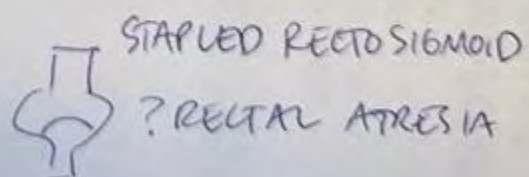 STAPLED RECTOSIGMOID
? RECTAL ATRESIA